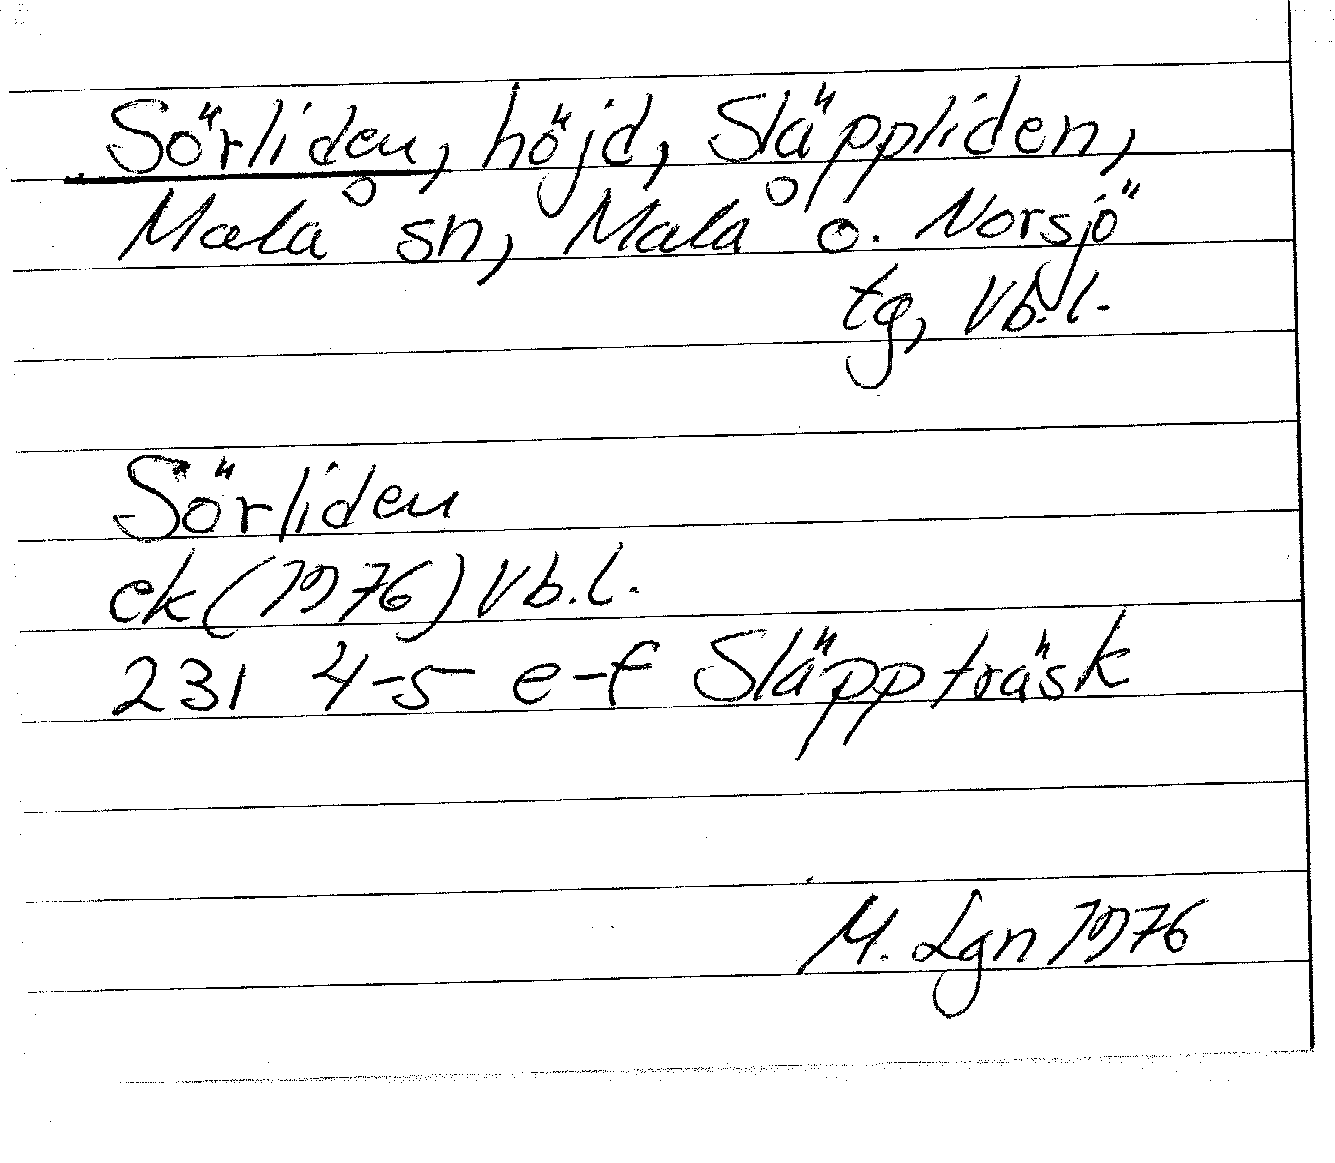 Sörliden, höjd, Släppliden,
Malå sn, Malå o. Norsjö
tg, Vb.l.
Sörliden
ek (1976) Vb.l.
231 4-5 e-f Släppträsk
M. Lgn 1976